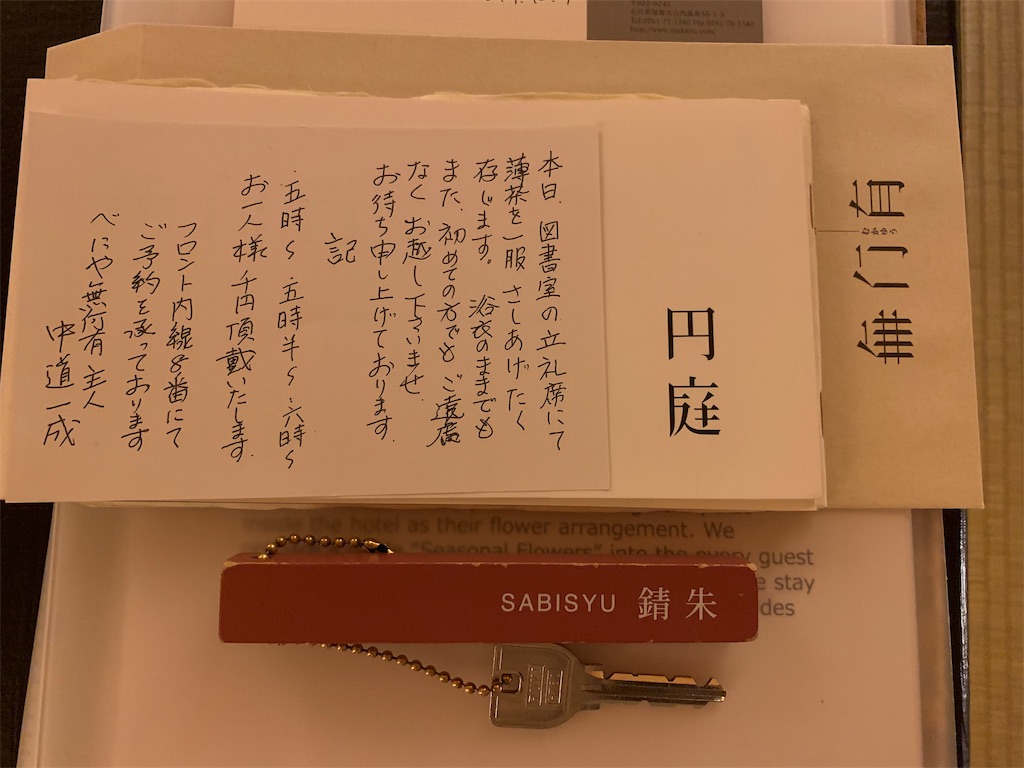 本日、図書室の立礼席にて
薄茶を一服さしあげたく
存じます。浴衣のままでも
また、初めての方でもご遠慮
なくお越し下さいませ。
お待ち申し上げております。
記
・五時〜・五時半〜・六時〜
お一人様千円頂戴いたします。
フロント内線8番にて
ご予約を承っております
べにや無何有主人
中道一成
円庭
無何有
むかゆう
inside the hotel as their flower arrangement. We
"Seasonal Flowers" into the every guest
stay
SABISYU 錆朱